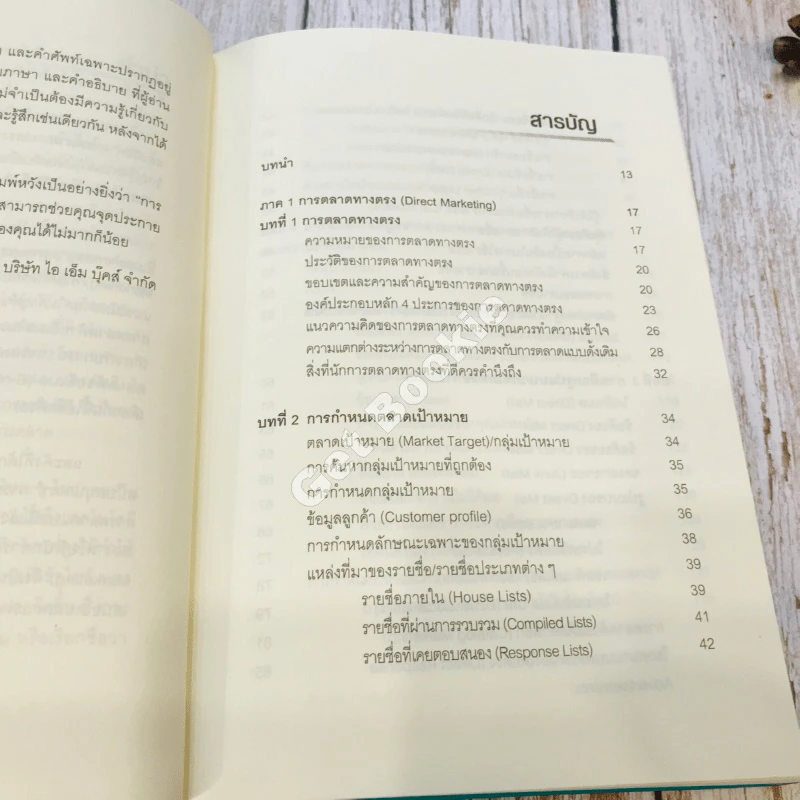 และคำศัพท์เฉพาะปรากฏอยู่
ภาษา และคำอธิบาย ที่ผู้อ่าน
จำเป็นต้องมีความรู้เกี่ยวกับ
ะรู้สึกเช่นเดียวกัน หลังจากได้
มพ์หวังเป็นอย่างยิ่งว่า "การ
สามารถช่วยคุณจุดประกาย
องคุณได้ไม่มากก็น้อย
บริษัท ไอ เอ็ม บุ๊คส์ จำกัด
สารบัญ
บทนำ 13
ภาค 1 การตลาดทางตรง (Direct Marketing) 17
บทที่ 1 การตลาดทางตรง 17
ความหมายของการตลาดทางตรง 17
ประวัติของการตลาดทางตรง 20
ขอบเขตและความสำคัญของการตลาดทางตรง 20
องค์ประกอบหลัก 4 ประการของการตลาดทางตรง 23
แนวความคิดของการตลาดทางตรงที่คุณควรทำความเข้าใจ 26
ความแตกต่างระหว่างการตลาดทางตรงกับการตลาดแบบดั้งเดิม 28
สิ่งที่นักการตลาดทางตรงที่ดีควรคำนึงถึง 32
บทที่ 2 การกำหนดตลาดเป้าหมาย 34
ตลาดเป้าหมาย (Market Target)/กลุ่มเป้าหมาย 34
การค้นหากลุ่มเป้าหมายที่ถูกต้อง 35
การกำหนดกลุ่มเป้าหมาย 35
ข้อมูลลูกค้า (Customer profile) 36
การกำหนดลักษณะเฉพาะของกลุ่มเป้าหมาย 38
แหล่งที่มาของรายชื่อ/รายชื่อประเภทต่าง ๆ 39
รายชื่อภายใน (House Lists) 39
รายชื่อที่ผ่านการรวบรวม (Compiled Lists) 41
รายชื่อที่เคยตอบสนอง (Response Lists) 42
Get Bookie